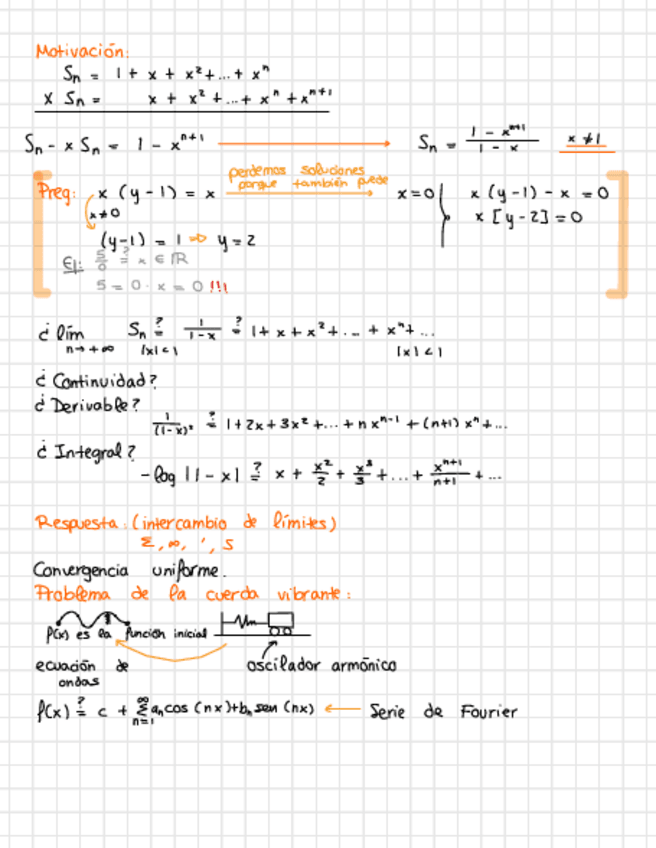 Motivación:
Sₙ = 1 + x + x² + ... + xⁿ
x Sₙ = x + x² + ... + xⁿ + xⁿ⁺¹
Sₙ - x Sₙ = 1 - xⁿ⁺¹ → Sₙ = (1 - xⁿ⁺¹)/(1 - x) x ≠ 1
Preg: x (y - 1) = x perdemos soluciones porque también puede → x = 0 | x (y - 1) - x = 0
x ≠ 0 x [y - 2] = 0
(y - 1) = 1 ⇒ y = 2
Ej: 5/0 ≟ x ∈ ℝ
5 = 0 · x = 0 !!!
¿ lím n→+∞ Sₙ ≟ |x|<1 1/(1 - x) ≟ 1 + x + x² + ... + xⁿ + ... |x|<1
¿ Continuidad?
¿ Derivable?
1/(1-x)² ≟ 1 + 2x + 3x² + ... + n xⁿ⁻¹ + (n+1) xⁿ + ...
¿ Integral?
- log |1 - x| ≟ x + x²/2 + x³/3 + ... + xⁿ⁺¹/(n+1) + ...
Respuesta: (intercambio de límites)
Σ, ∞, ', ∫
Convergencia uniforme.
Problema de la cuerda vibrante:
f(x) es la función inicial
ecuación de ondas oscilador armónico
f(x) ≟ c + ∞Σn=1 aₙ cos (nx) + bₙ sen (nx) ← Serie de Fourier